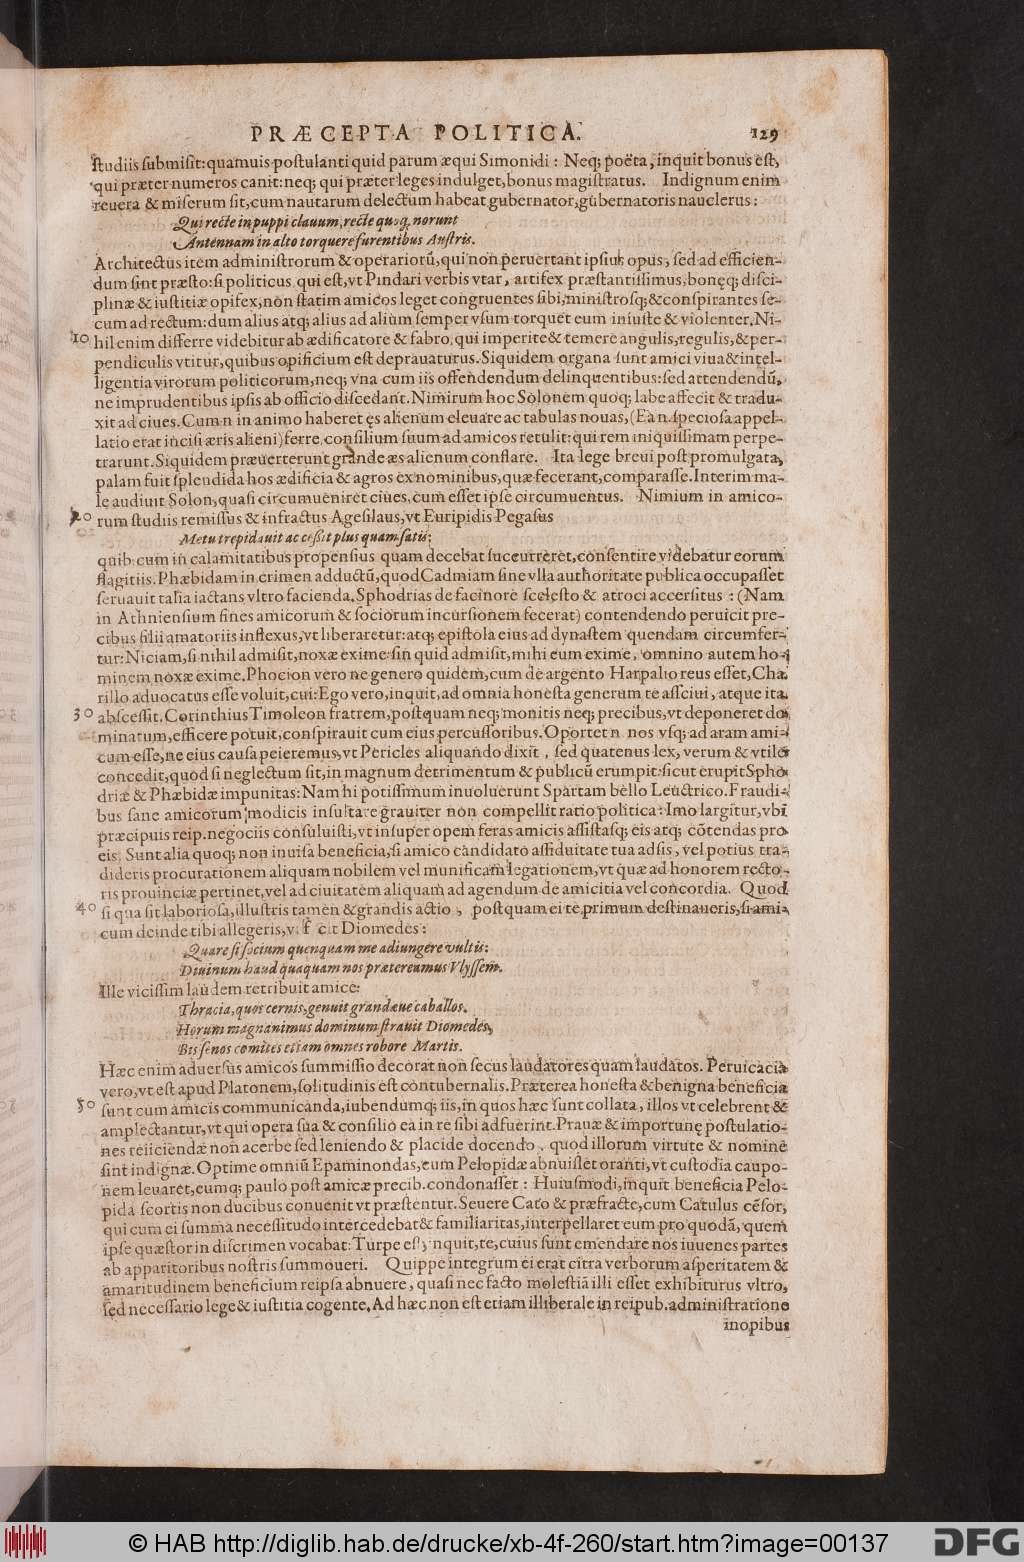 PRÆCEPTA POLITICA. 129
studiis submisit: quamuis postulanti quid parum æqui Simonidi: Neq; poëta, inquit bonus est,
qui præter numeros canit: neq; qui præter leges indulget, bonus magistratus. Indignum enim
reuera & miserum sit, cum nautarum delectum habeat gubernator, gubernatoris nauclerus:
Qui recte in puppi clauum, recte quoq; norunt
Antennam in alto torquere furentibus Austris.
Architectus item administrorum & operariorū, qui non peruertant ipsius opus, sed ad efficien-
dum sint præsto: si politicus qui est, vt Pindari verbis vtar, artifex præstantissimus, bonęq; disci-
plinæ & iustitiæ opifex, non statim amicos leget congruentes sibi, ministrosq; & conspirantes se-
cum ad rectum: dum alius atq; alius ad alium semper vsum torquet eum iniuste & violenter. Ni-
10 hil enim differre videbitur ab ædificatore & fabro, qui imperite & temere angulis, regulis, & per-
pendiculis vtitur, quibus opificium est deprauaturus. Siquidem organa sunt amici viua & intel-
ligentia virorum politicorum, neq; vna cum iis offendendum delinquentibus: sed attendendū,
ne imprudentibus ipsis ab officio discedant. Nimirum hoc Solonem quoq; labe affecit & tradu-
xit ad ciues. Cum n in animo haberet ęs alienum eleuare ac tabulas nouas, (Ea n. speciosa appel-
latio erat incisi æris alieni) ferre, consilium suum ad amicos retulit: qui rem iniquissimam perpe-
trarunt. Siquidem præuerterunt grande æs alienum conflare. Ita lege breui post promulgata,
palam fuit splendida hos ædificia & agros ex nominibus, quæ fecerant, comparasse. Interim ma-
le audiuit Solon, quasi circumueniret ciues, cum esset ipse circumuentus. Nimium in amico-
20 rum studiis remissus & infractus Agesilaus, vt Euripidis Pegasus
Metu trepidauit ac cessit plus quam satis:
quib. cum in calamitatibus propensius quam decebat succurreret, consentire videbatur eorum
flagitiis. Phæbidam in crimen adductū, quod Cadmiam sine vlla authoritate publica occupasset
seruauit talia iactans vltro facienda. Sphodrias de facinore scelęsto & atroci accersitus: (Nam
in Athniensium fines amicorum & sociorum incursionem fecerat) contendendo peruicit pre-
cibus filii amatoriis inflexus, vt liberaretur: atq; epistola eius ad dynastem quendam circumfer-
tur: Niciam, si nihil admisit, noxæ exime: sin quid admisit, mihi eum exime, omnino autem ho-
minem noxæ exime. Phocion vero ne genero quidem, cum de argento Harpalio reus esset, Cha
rillo aduocatus esse voluit, cui: Ego vero, inquit, ad omnia honesta generum te asciui, atque ita
30 abscessit. Corinthius Timoleon fratrem, postquam neq; monitis neq; precibus, vt deponeret do
minatum, efficere potuit, conspirauit cum eius percussoribus. Oportet n nos vsq; ad aram ami-
cum esse, ne eius causa peieremus, vt Pericles aliquando dixit, sed quatenus lex, verum & vtile
concedit, quod si neglectum sit, in magnum detrimentum & publicū erumpit: sicut erupit Spho
driæ & Phæbidæ impunitas: Nam hi potissimum inuoluerunt Spartam bello Leuctrico. Fraudi-
bus sane amicorum modicis insultare grauiter non compellit ratio politica: Imo largitur, vbi
præcipuis reip. negociis consuluisti, vt insuper opem feras amicis assistasq; eis atq; cōtendas pro
eis. Sunt alia quoq; non inuisa beneficia, si amico candidato assiduitate tua adsis, vel potius tra-
dideris procurationem aliquam nobilem vel munificam legationem, vt quæ ad honorem recto-
ris prouinciæ pertinet, vel ad ciuitatem aliquam ad agendum de amicitia vel concordia. Quod
40 si qua sit laboriosa, illustris tamen & grandis actio, postquam ei te primum destinaueris, si ami-
cum deinde tibi allegeris, cit Diomedes:
Quare si socium quenquam me adiungere vultis:
Diuinum haud quaquam nos prætereamus Vlyssem.
Ille vicissim laudem retribuit amice:
Thracia, quos cernis, genuit grandæue caballos.
Horum magnanimus dominum strauit Diomedes,
Bis senos comites etiam omnes robore Martis.
Hæc enim aduersus amicos summissio decorat non secus laudatores quam laudatos. Peruicacia
vero, vt est apud Platonem, solitudinis est contubernalis. Præterea honesta & benigna beneficia
50 sunt cum amicis communicanda, iubendumq; iis, in quos hæc sunt collata, illos vt celebrent &
amplectantur, vt qui opera sua & consilio ea in re sibi adfuerint. Prauæ & importunę postulatio-
nes reiiciendæ non acerbe sed leniendo & placide docendo, quod illorum virtute & nomine
sint indignæ. Optime omniū Epaminondas, cum Pelopidæ abnuisset oranti, vt custodia caupo-
nem leuaret, eumq; paulo post amicæ precib. condonasset: Huiusmodi, inquit beneficia Pelo-
pida scortis non ducibus conuenit vt præstentur. Seuere Cato & præfracte, cum Catulus cēsor,
qui cum ei summa necessitudo intercedebat & familiaritas, interpellaret eum pro quodā, quem
ipse quæstor in discrimen vocabat: Turpe est, inquit, te, cuius sunt emendare nos iuuenes partes
ab apparitoribus nostris summoueri. Quippe integrum ei erat citra verborum asperitatem &
amaritudinem beneficium reipsa abnuere, quasi nec facto molestiā illi esset exhibiturus vltro,
sed necessario lege & iustitia cogente. Ad hæc non est etiam illiberale in reipub. administratione
inopibus
© HAB http://diglib.hab.de/drucke/xb-4f-260/start.htm?image=00137
DFG